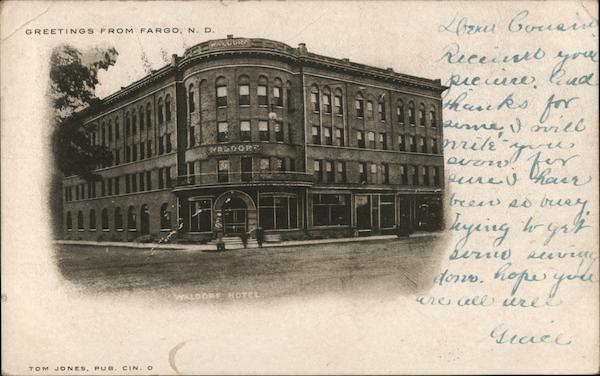 GREETINGS FROM FARGO, N. D.
WALDORF
WALDORF
WALDORF HOTEL
TOM JONES, PUB. CIN. O
Dear Cousin
Received your
picture. And
thanks for
same, I will
write you
soon for
sure I have
been so busy
trying to get
some sewing
done. hope you
are all well
Grace